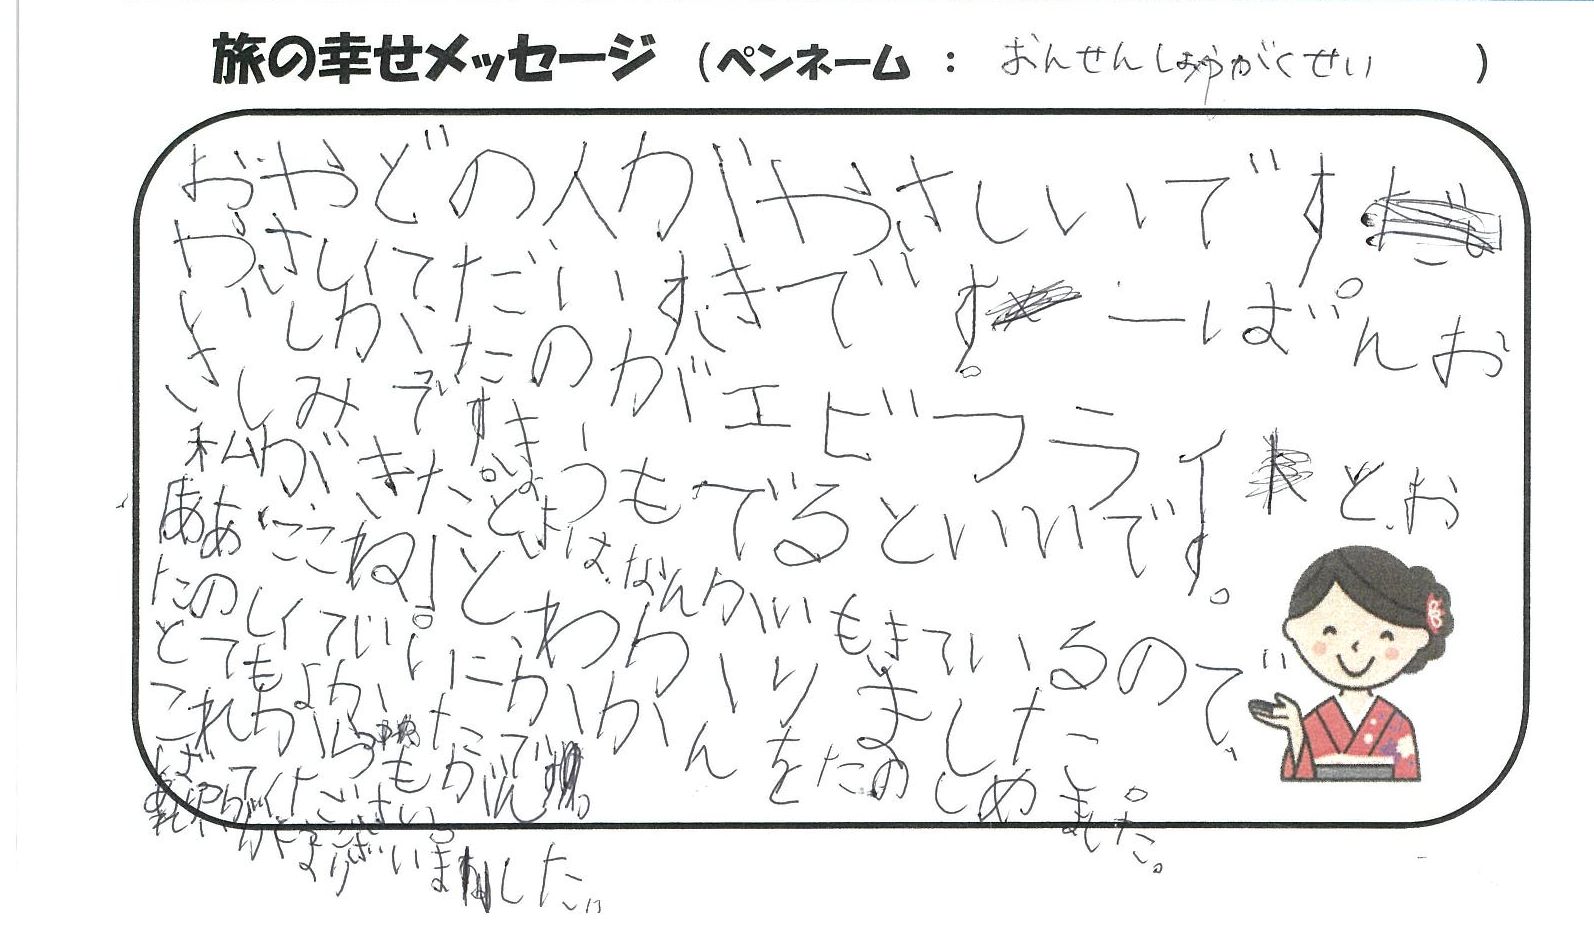 旅の幸せメッセージ (ペンネーム : おんせんしょうがくせい )
おやどの人がやさしいです
やさしくてだいすきです。一ばんお
いしかったのがエビフライとお
さしみです。きょうもでるといいです。
私がきたときは、なんかいもきているので
ああここね!とわかりました。
たのしくていいにかかんをたのしめました。
とてもよかったです。
これからもがん
ばってください。
ありがとうございました。